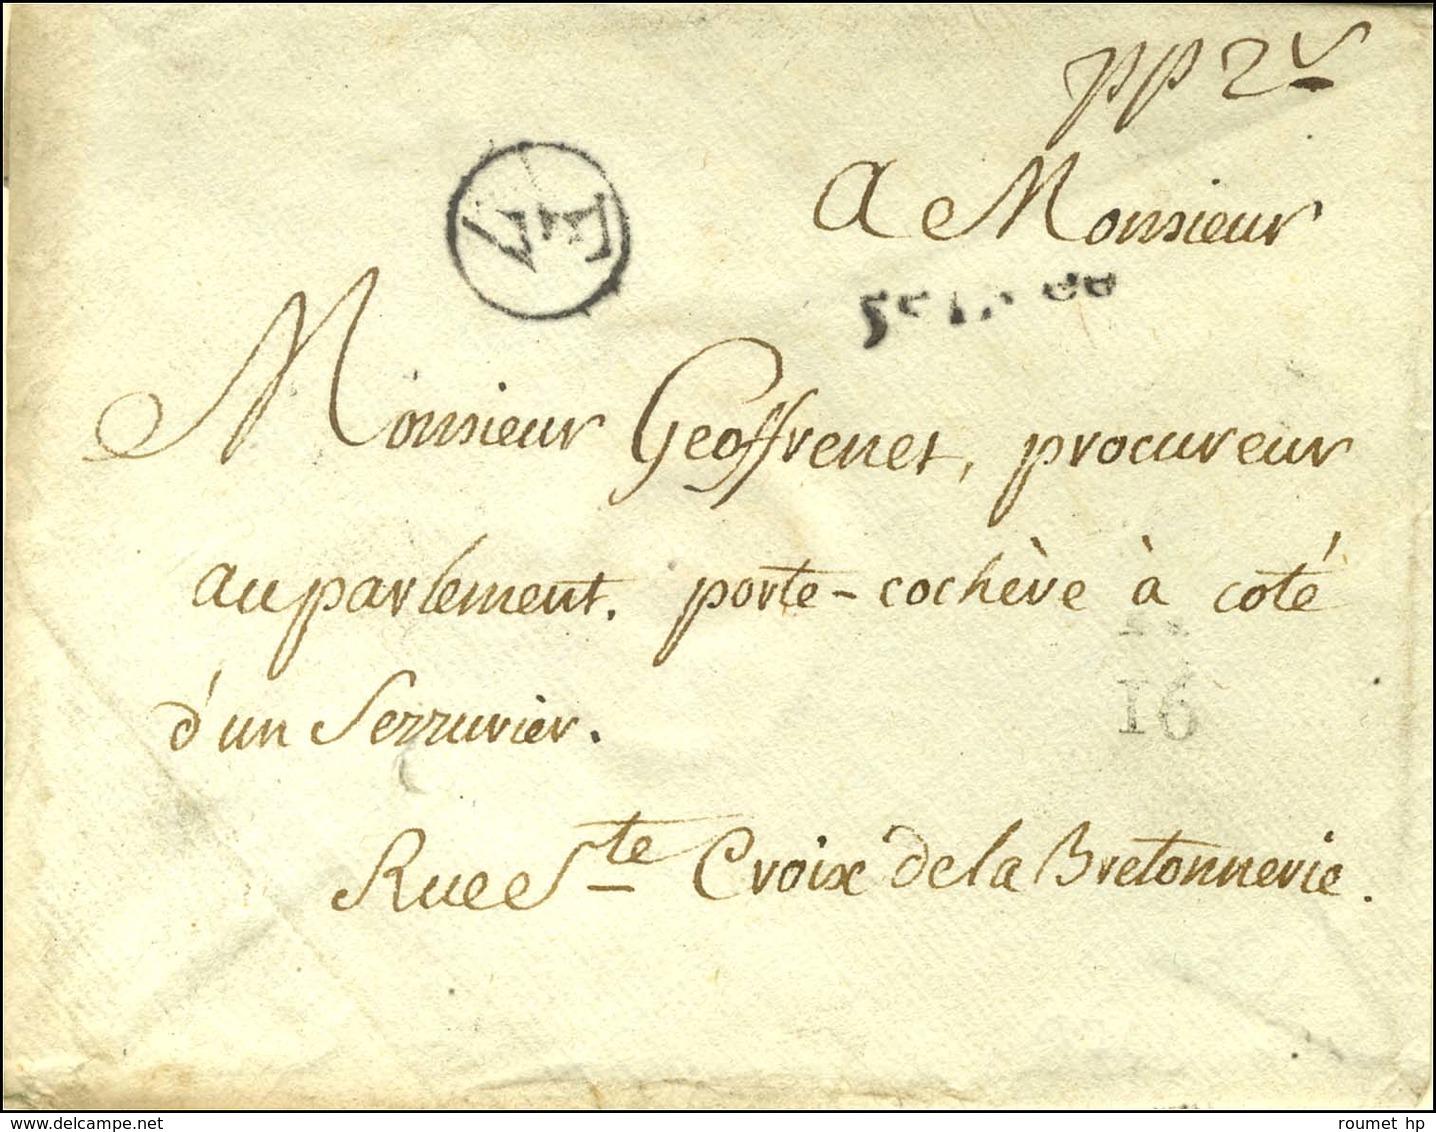 pp 2s
A Monsieur
Monsieur Geoffrenet, procureur
au parlement. porte-cochère à coté
16
d'un Serrurier.
Rue Ste Croix de la Bretonnerie.
delcampe.net
roumet hp